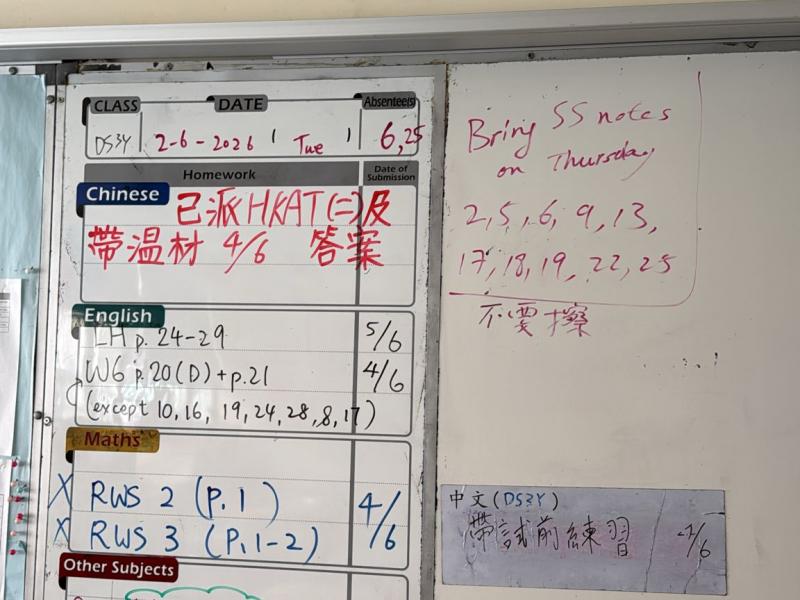 CLASS DATE Absentee(s)
DS3Y 2-6-2026 ( Tue ) 6,25
Homework Date of Submission
Chinese
已派HKAT(二)及
帶温材 4/6 答案
English
LH p. 24-29 5/6
WG p.20(D)+p.21 4/6
(except 10,16, 19,24,28,8,17)
Maths
X RWS 2 (P.1) 4/6
X RWS 3 (P.1-2)
Other Subjects
Bring SS notes
on Thursday
2,5,6,9,13,
17,18,19,22,25
不要擦
中文(DS3Y)
帶試前練習